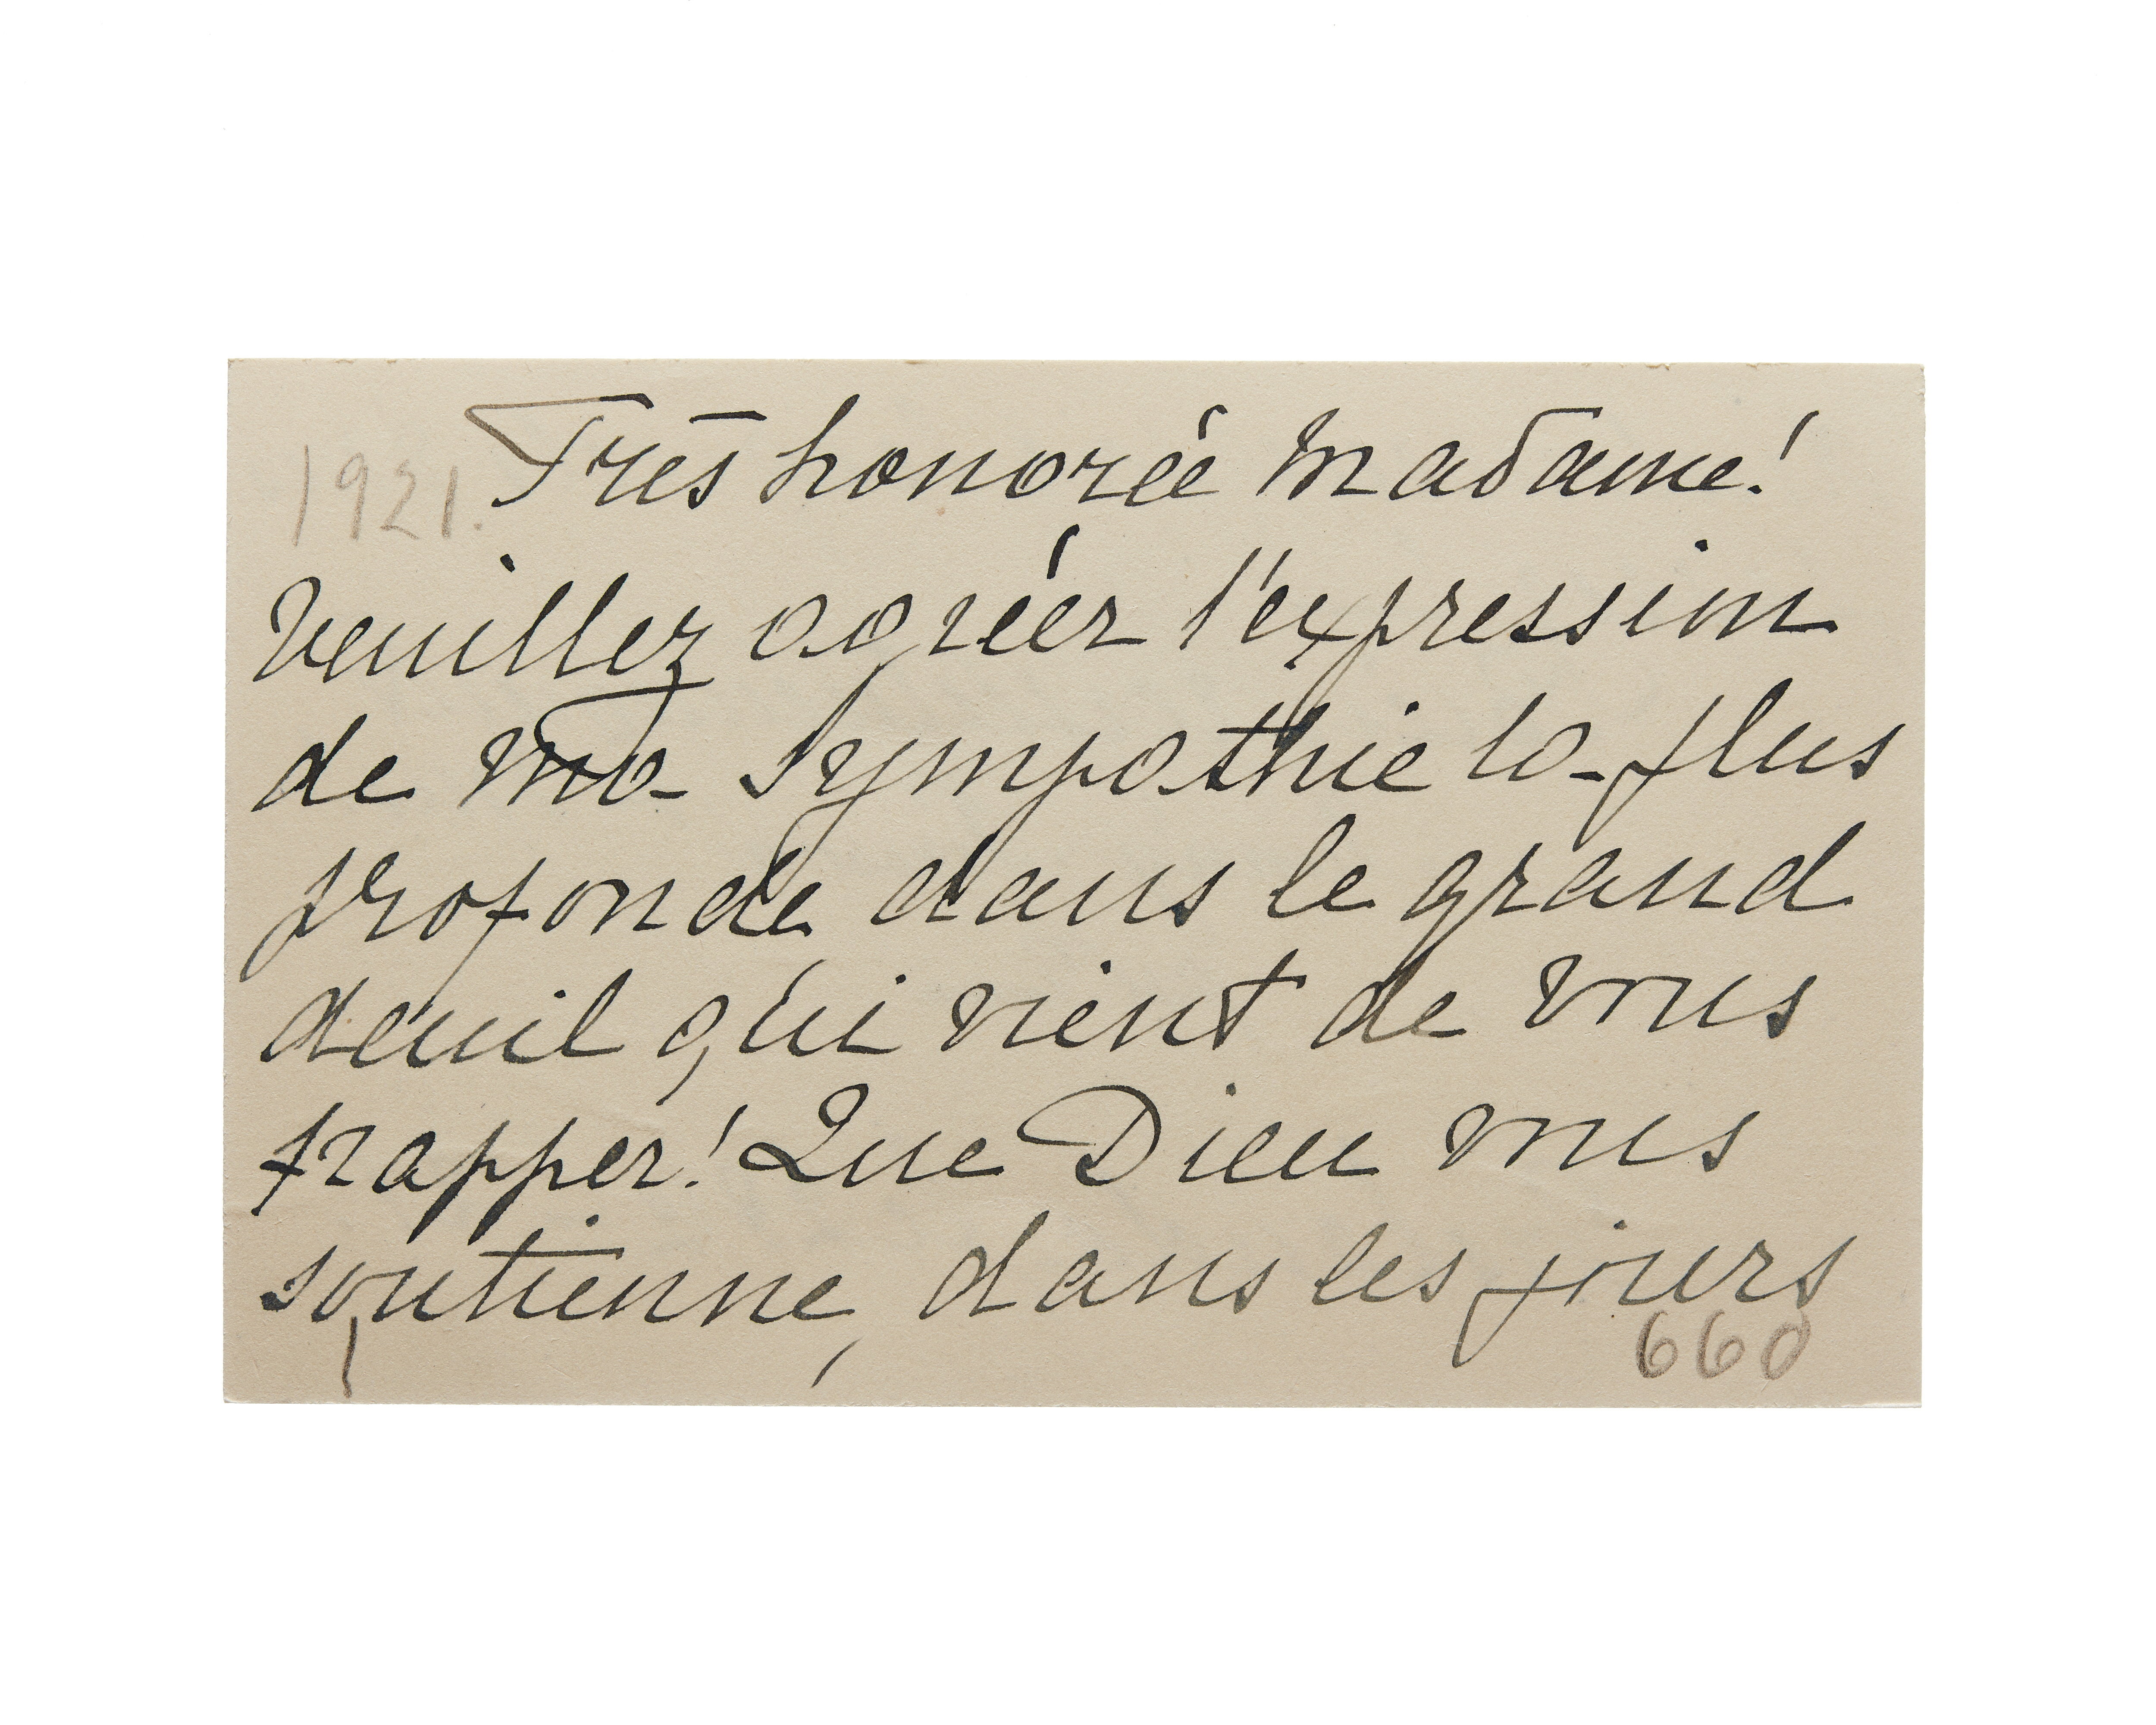 Très honorée Madame!
1921.
Veuillez agréer l'expression
de ma sympathie la plus
profonde dans le grand
deuil qui vient de vous
frapper! Que Dieu vous
soutienne, dans les jours
660